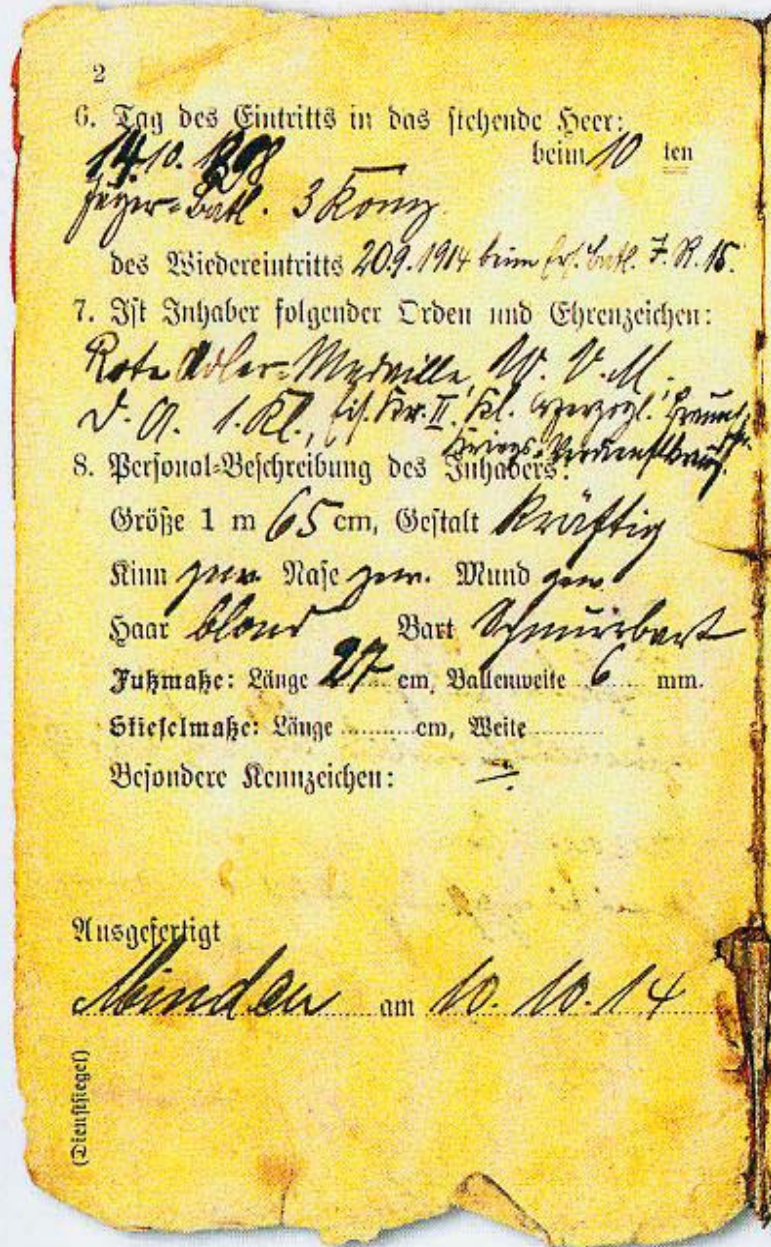 2
6. Tag des Eintritts in das stehende Heer:
14.10.1898 beim 10 ten
Jäger-Batl. 3 Komp.
des Wiedereintritts 20.9.1914 beim Ers. Batl. F. R. 15.
7. Ist Inhaber folgender Orden und Ehrenzeichen:
Rote Adler-Medaille, W. V. M.
D. A. 1. Kl., Eis. Kr. II. Kl.
Kriegs-Verdienstkreuz.
8. Personal-Beschreibung des Inhabers:
Größe 1 m 65 cm, Gestalt kräftig
Kinn gew. Nase gew. Mund gew.
Haar blond Bart Schnurrbart
Fußmaße: Länge 27 cm, Ballenweite 6 mm.
Stiefelmaße: Länge ........ cm, Weite ........
Besondere Kennzeichen: —
Ausgefertigt
Minden am 10. 10. 14
(Dienstsiegel)